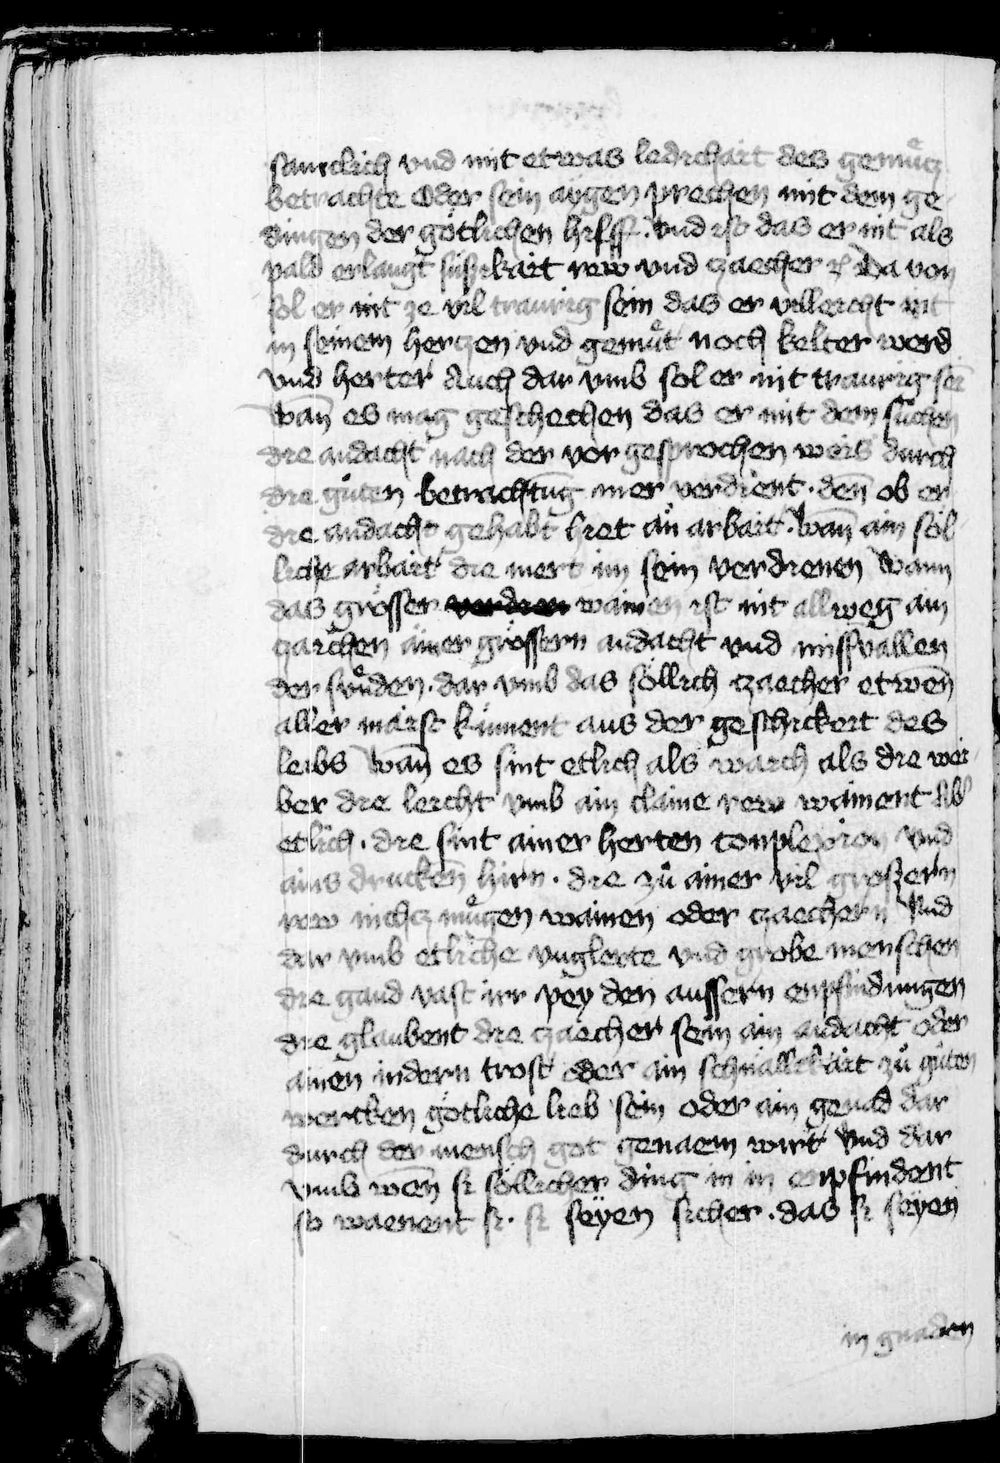 saurclich vnd mit etwas ledrchait des gemuͤcz
betrachte Oder sein aygen prechen mit dem ge
dingen der goͤtlichen hilff. vnd ist das er nit als
pald erlangt süssikait rew vnd czaecher ꝛc Da von
sol er nit ze vil traurig sein das er villeicht nit
in seinem herczen vnd gemuͤt noch kelter werd
vnd herter Auch dar vmb sol er nit traurig sei
wan̄ es mag geschechen das er mit dem suͤchen
die andacht nach der vor gesprochen weis durch
die guͤten betrachtūg mer verdient. den̄ ob er
die andacht gehabt hiet an̈ arbait. Wan̄ ain söl
liche arbait die mert im sein verdienen Wann
das grösser wainen ist nit allweg ain
czaichen ainer grössern andacht vnd missvallen
der suͤnden. dar vmb das söllich czaecher etwen̄
aller maist kument aus der geschickeit des
leibs Wan̄ es sint etlich als waich als die wei
ber die leicht vmb ain claine rew wainent Ab
etlich. die sint ainer herten conplexion vnd
ains drucken̄ hirn. die zuͦ ainer vil groszern
rew nichcz muͤgen wainen oder czaechern Vnd
dar vmb etliche vnglerte vnd grobe menschen
die gand vast irr pey den aussern enpfindungen
die glaubent die czaecher sein ain andacht oder
ainen indern trost oder ain schnallikait zuͦ guͦten
wercken götliche lieb sein oder ain genad dar
durch der mensch got genaem wirt Vnd dar
vmb wen̄ si söllicher ding in in enpfindent
so waenent si. si seyen sicher. das si seyen
in gnaden